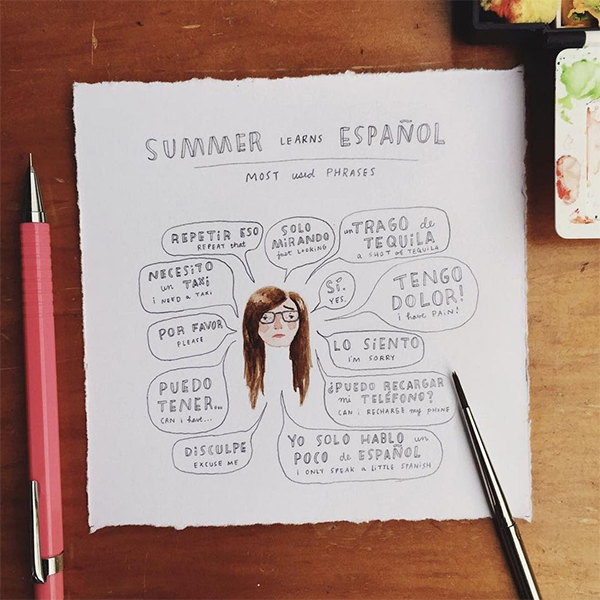 SUMMER LEARNS ESPAÑOL
MOST used PHRASES
REPETIR ESO
REPEAT that
SOLO
MIRANDO
just LOOKING
un TRAGO de
TEQUILA
a SHOT of TEQUILA
NECESITO
un TAXI
i NEED a TAXI
SÍ.
YES.
TENGO
DOLOR!
i have PAIN!
POR FAVOR
PLEASE
LO SIENTO
I'M SORRY
PUEDO
TENER...
CAN i HAVE...
¿PUEDO RECARGAR
mi TELÉFONO?
CAN i RECHARGE my PHONE
DISCULPE
EXCUSE ME
YO SOLO HABLO un
POCO de ESPAÑOL
i ONLY SPEAK a LITTLE SPANISH